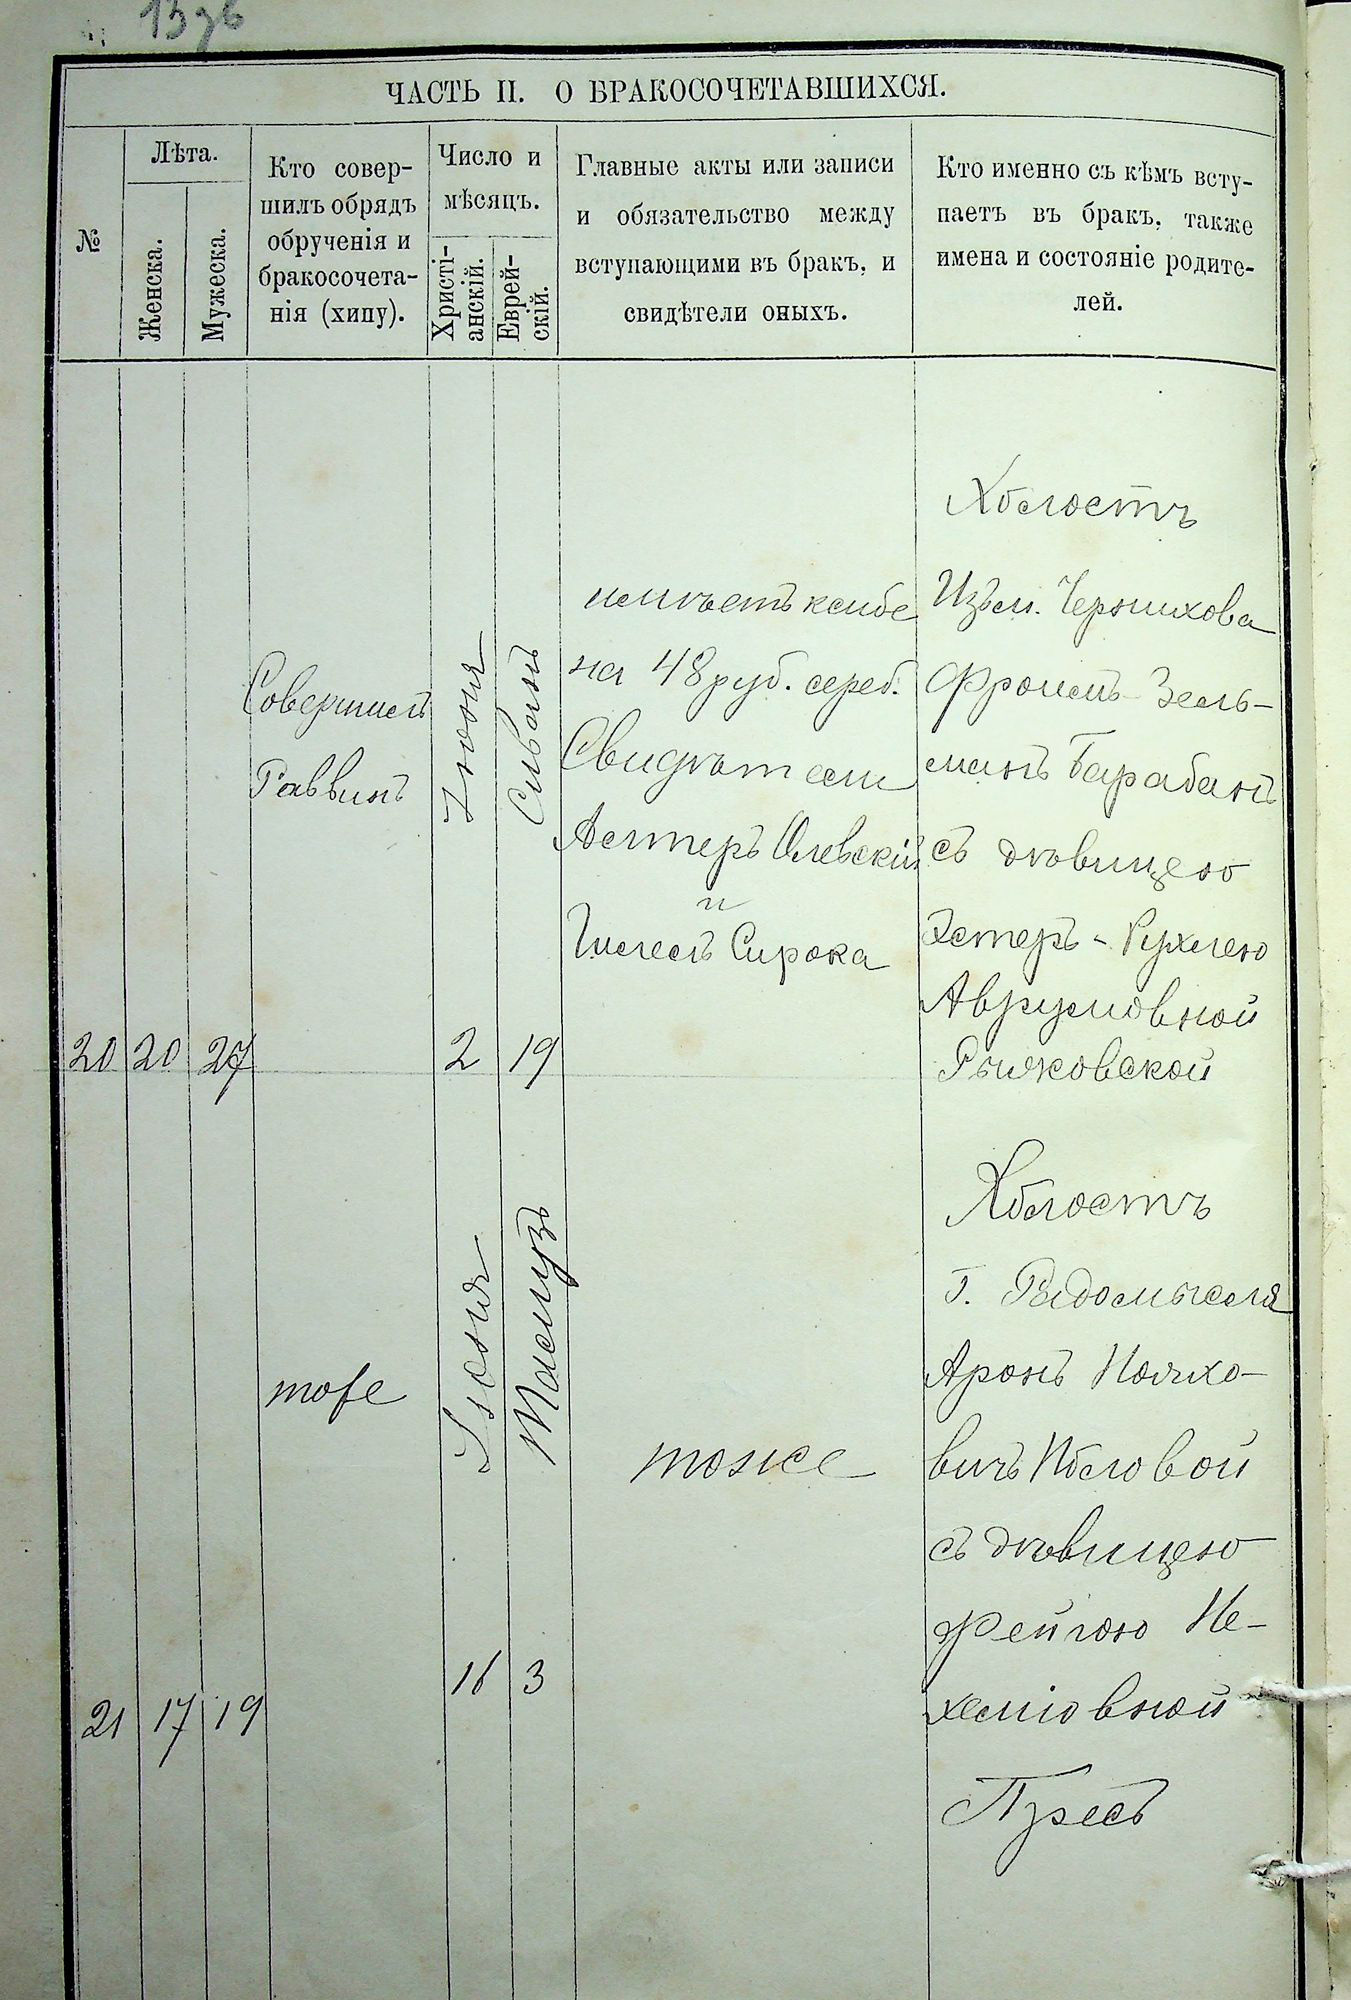 13 зб
ЧАСТЬ II. О БРАКОСОЧЕТАВШИХСЯ.
№
Лѣта.
Женска.
Мужеска.
Кто совер-
шилъ обрядъ
обрученія и
бракосочета-
нія (хипу).
Число и
мѣсяцъ.
Христі-
анскій.
Еврей-
скій.
Главные акты или записи
и обязательство между
вступающими въ бракъ, и
свидѣтели оныхъ.
Кто именно съ кѣмъ всту-
паетъ въ бракъ, также
имена и состояніе родите-
лей.
20
20
27
Совершилъ
Раввинъ
Іюня
2
Сиванъ
19
на 48 руб. сереб.
Свидѣтели
Олевскій
и
Сирока
Холостъ
Изъ м. Чернихова
Фроимъ-Зель-
манъ Барабанъ
съ дѣвицею
Эстеръ-Рухлею
Аврумовной
Рыжовской
21
17
19
тоже
Іюня
16
Тамузъ
3
тоже
Холостъ
г. Радомысля
Аронъ Іойхо-
вичъ
съ дѣвицею
Фейгою Не-
хеміовной